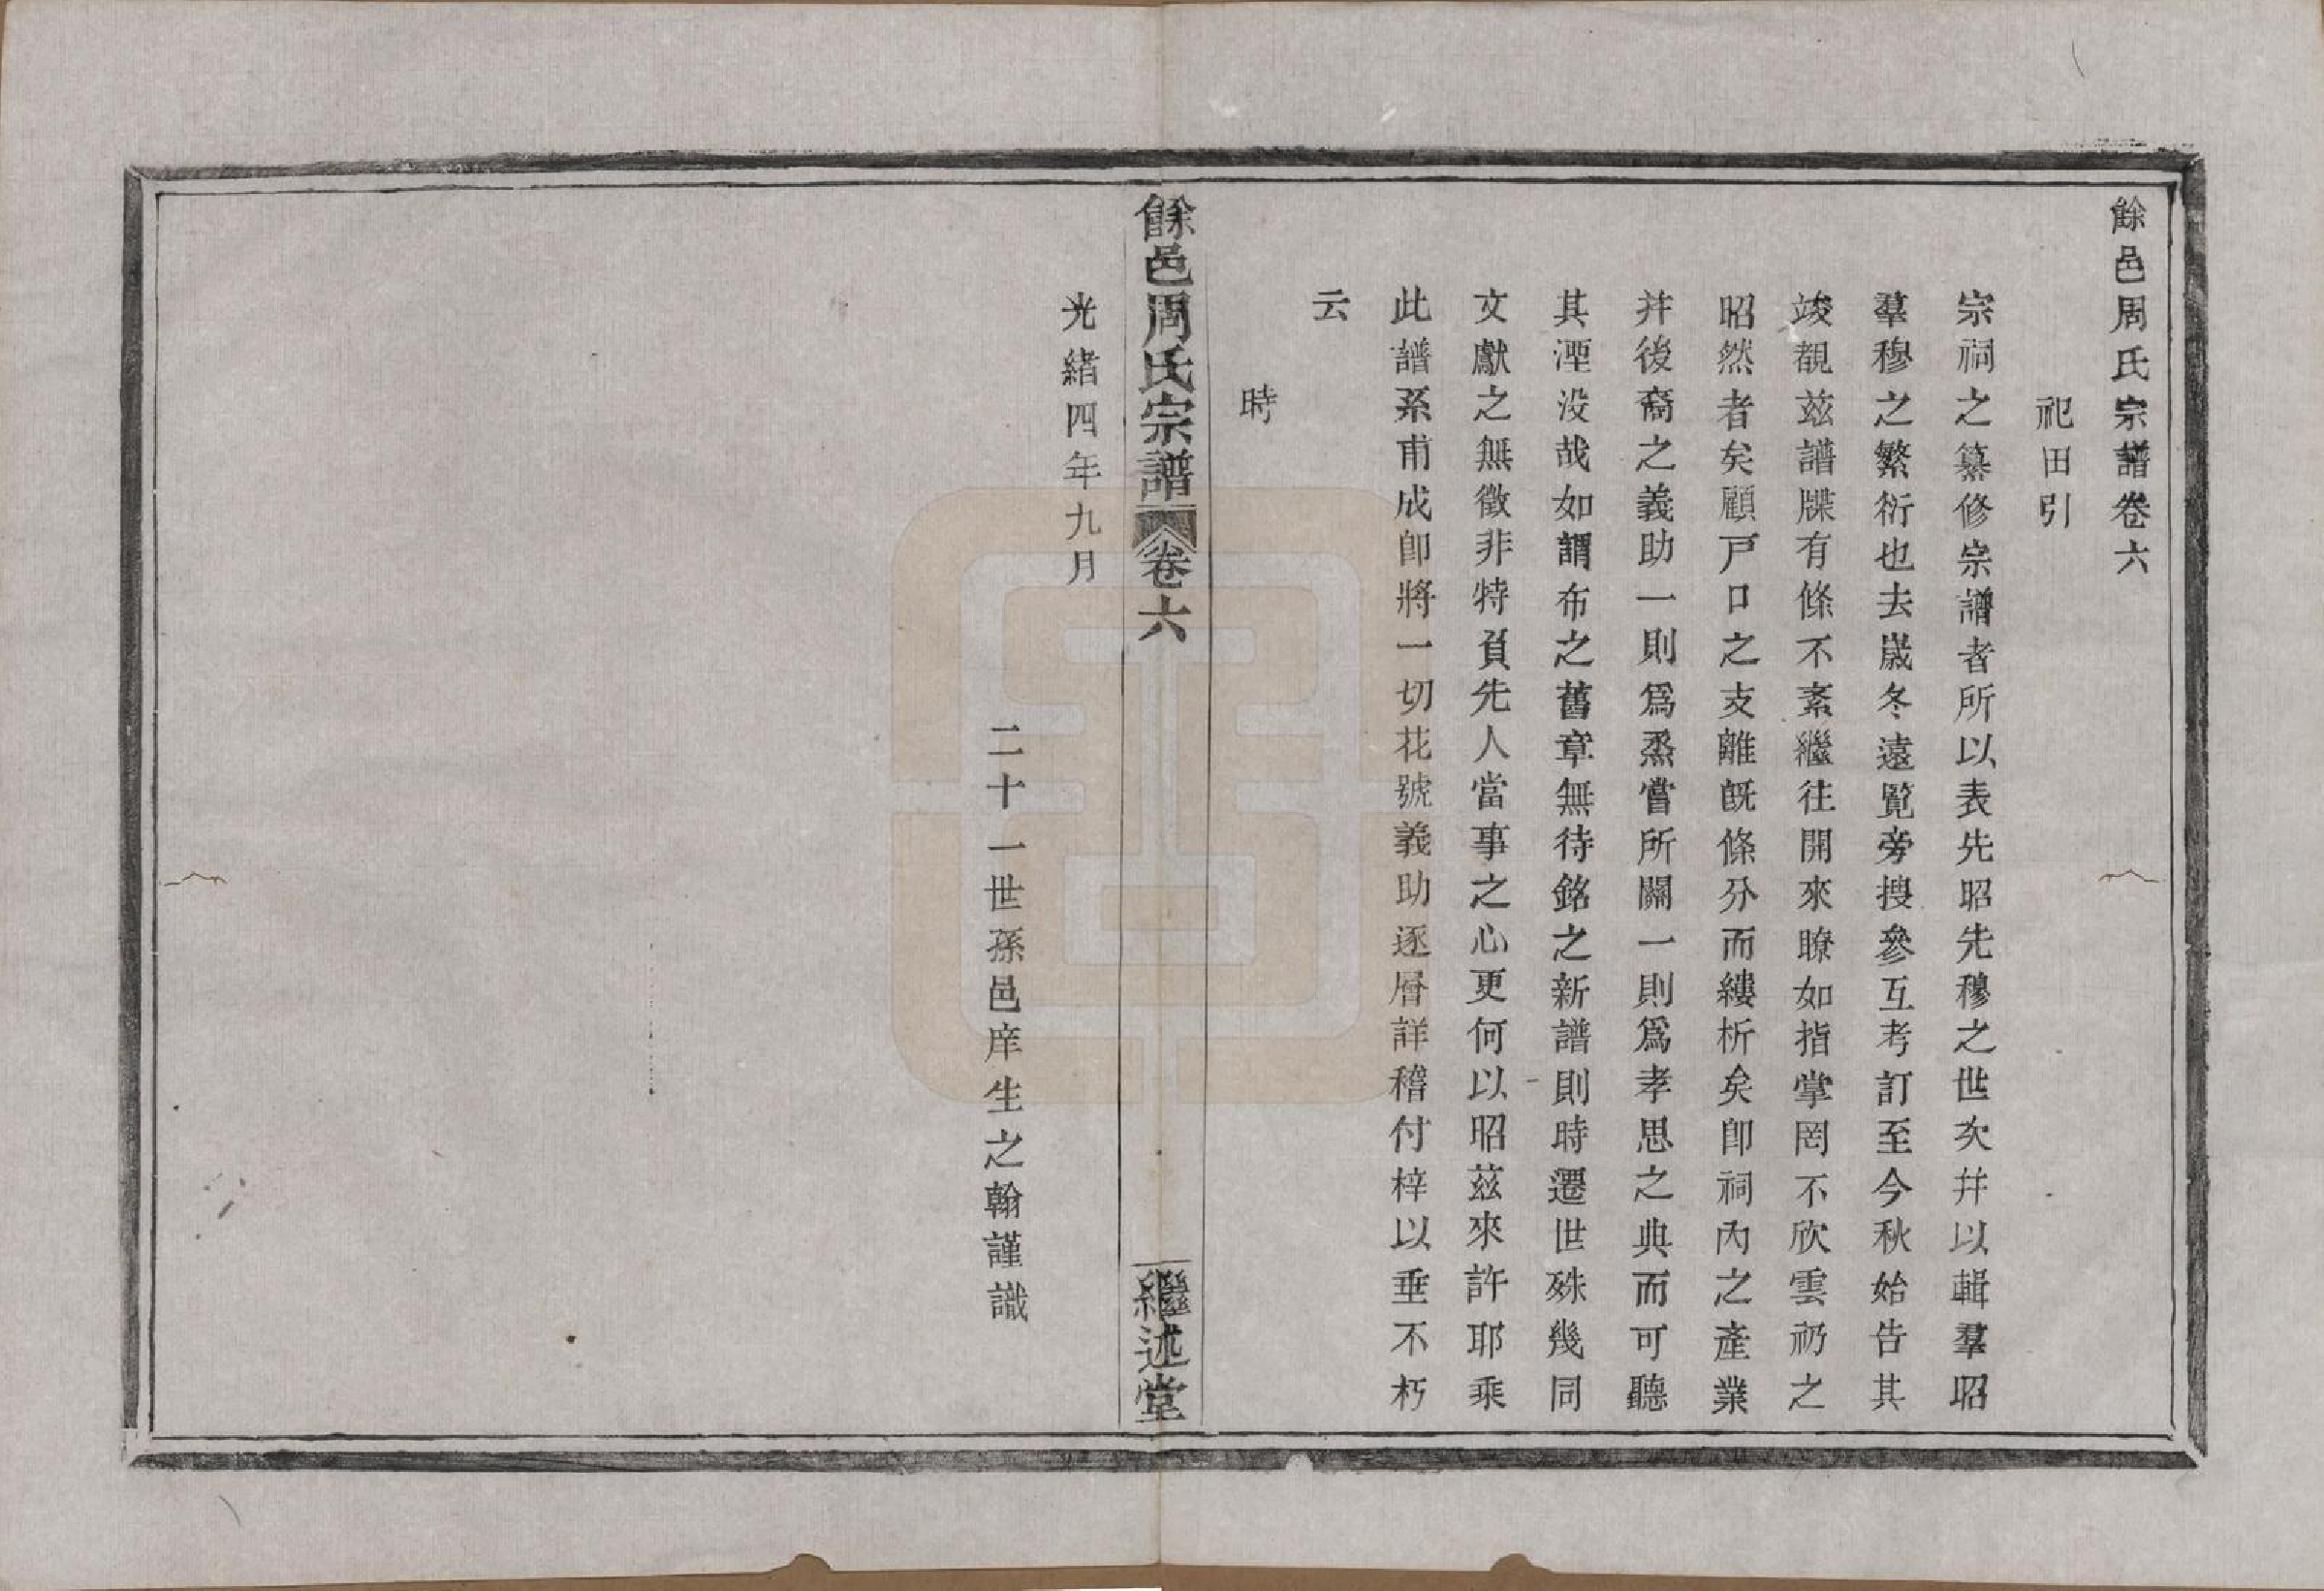 餘邑周氏宗譜卷六
祀田引
宗祠之纂修宗譜者所以表先昭先穆之世次幷以輯羣昭
羣穆之繁衍也去歲冬遠覧旁搜參互考訂至今秋始告其
竣覩茲譜牒有條不紊繼往開來瞭如指掌罔不欣雲礽之
昭然者矣顧戸口之支離旣條分而縷析矣卽祠內之產業
幷後裔之義助一則爲烝嘗所關一則爲孝思之典而可聽
其湮没哉如謂布之舊章無待銘之新譜則時遷世殊幾同
文獻之無徵非特負先人當事之心更何以昭茲來許耶乘
此譜系甫成卽將一切花號義助逐層詳稽付梓以垂不朽
云
時
餘邑周氏宗譜
卷六
繼述堂
光緒四年九月
二十一世孫邑庠生之翰謹識